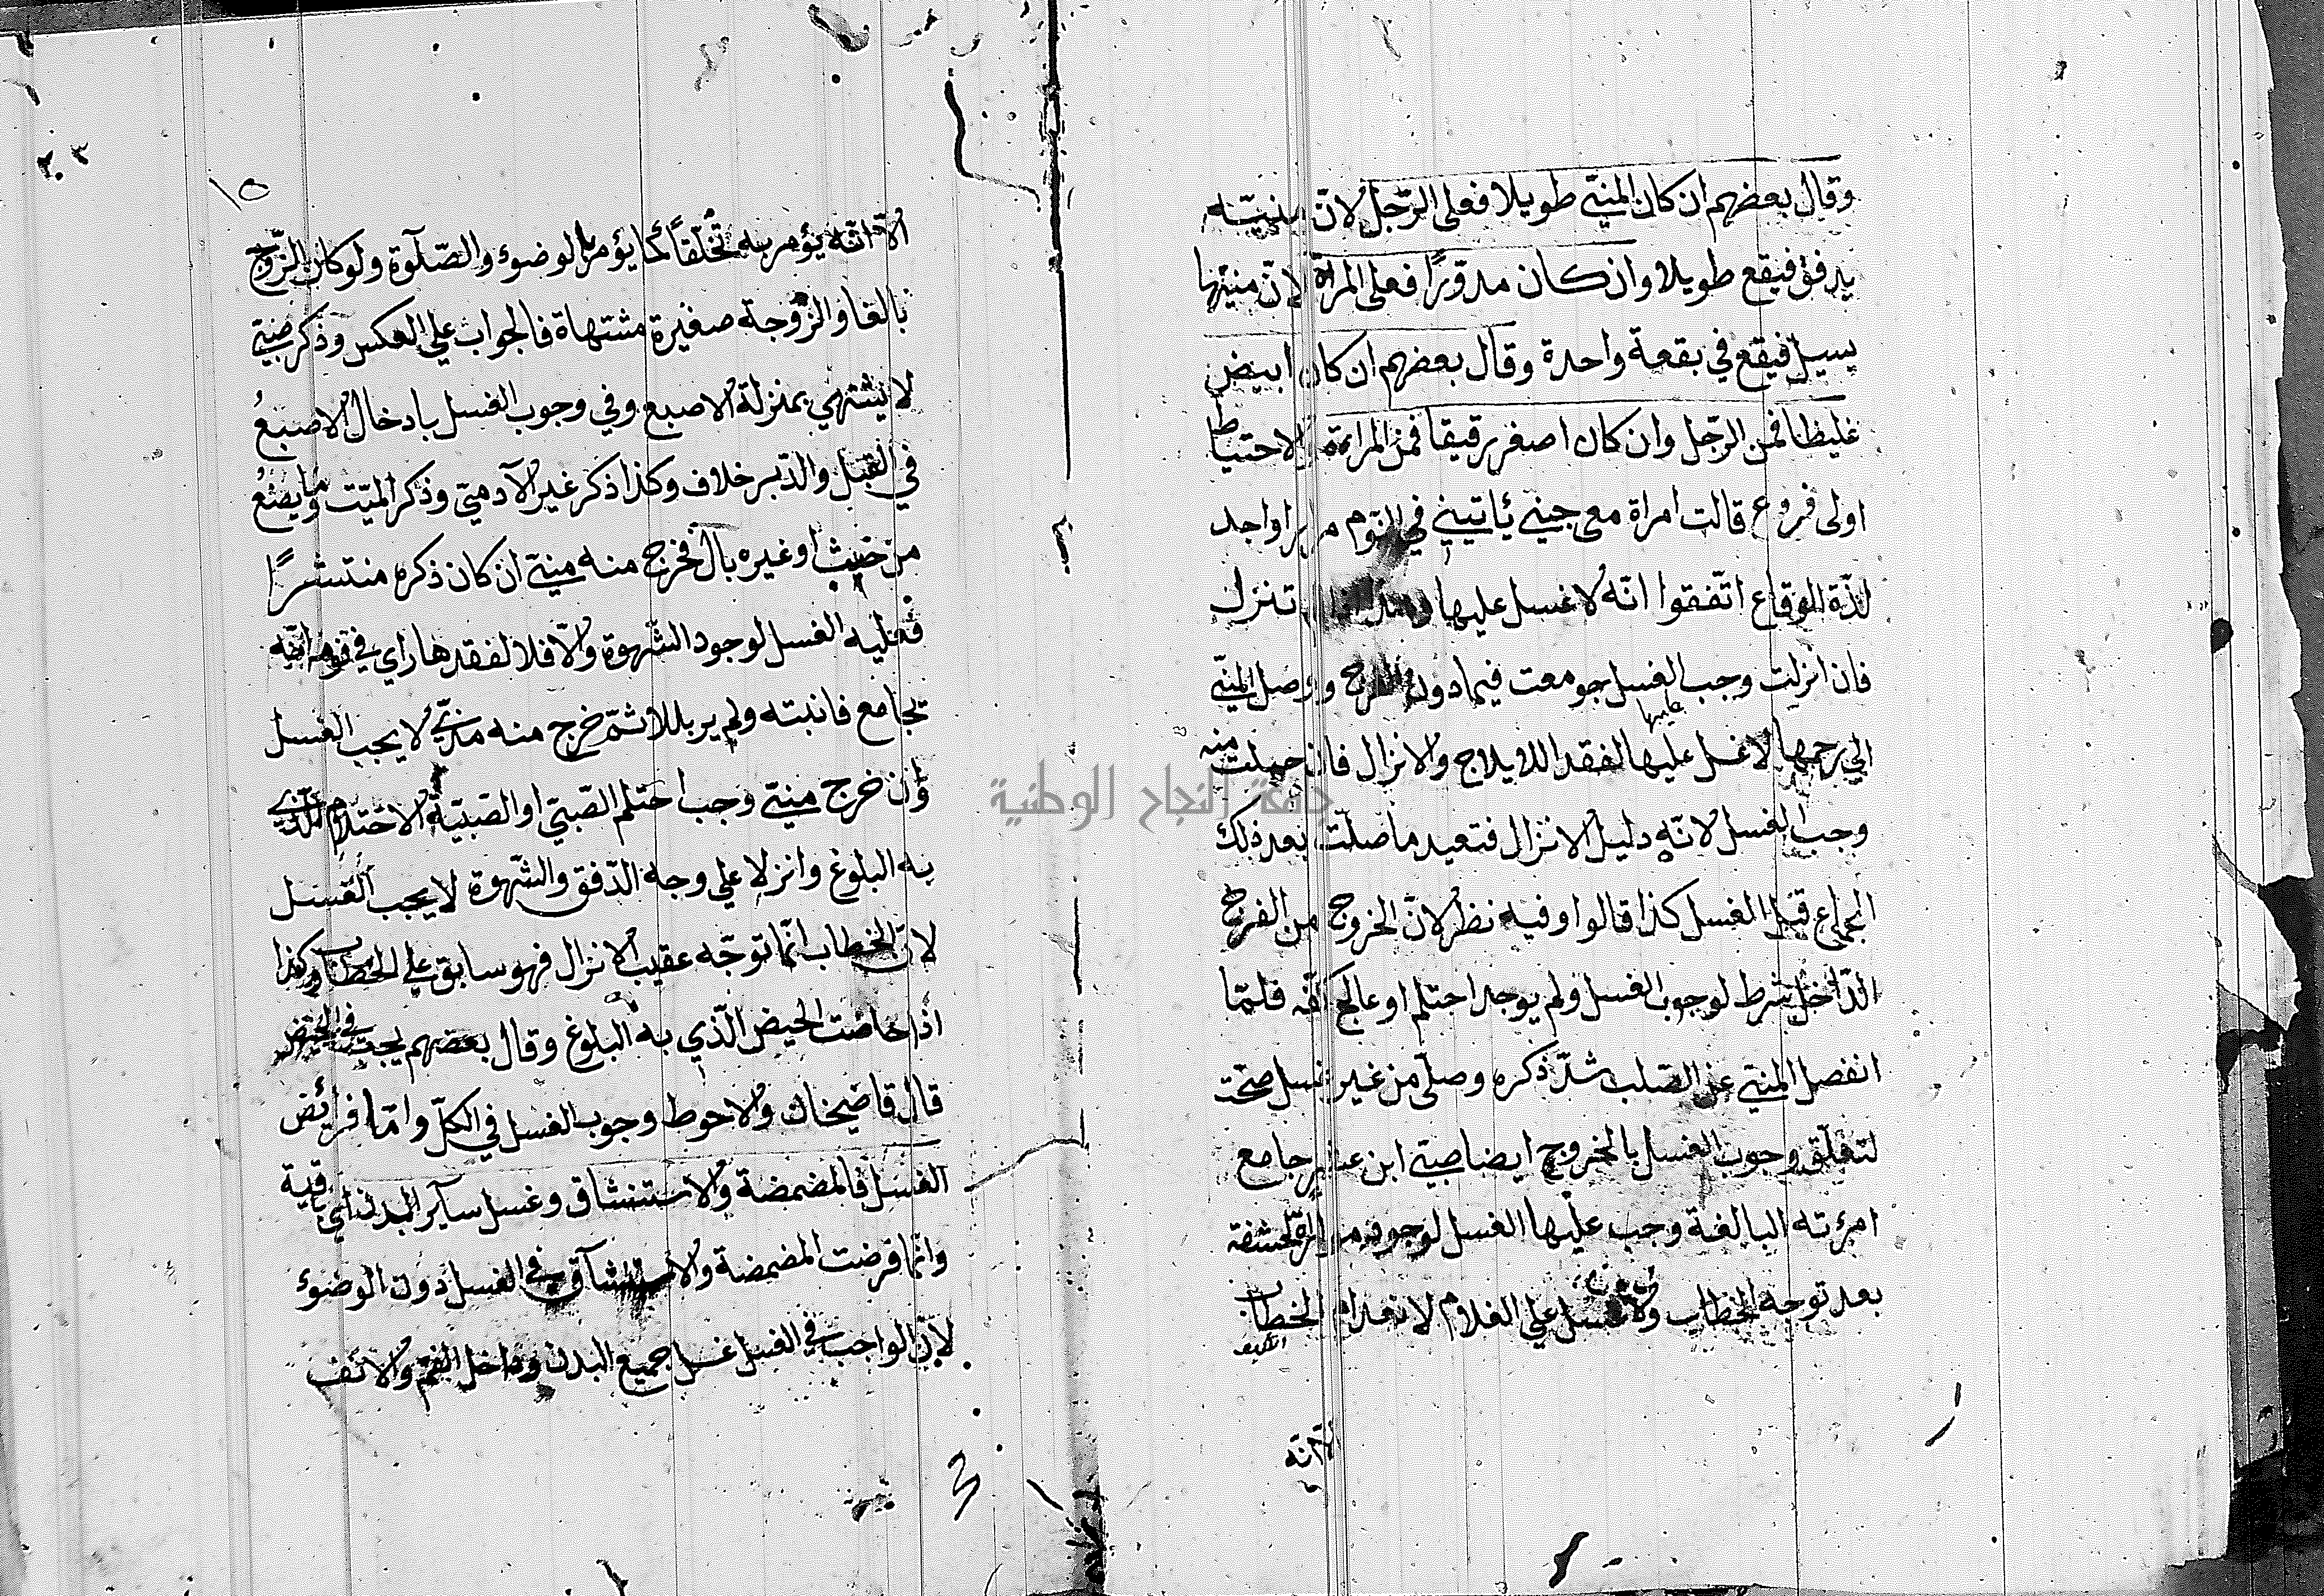 وقال بعضهم ان كان المنيّ طويلا فعلى الرّجل لانّ منيّه
يدفق فيقع طويلا وان كان مدوّرًا فعلى المرأة لانّ منيّها
يسيل فيقع في بقعة واحدة وقال بعضهم ان كان ابيض
غليظا فمن الرّجل وان كان اصفر رقيقا فمن المراءة والاحتياط
اولى فروع قالت امراة معى جنيّ يأتيني في النّوم مرارا واجد
لذّة الوقاع اتّفقوا انّه لا غسل عليها تنزل
فان انزلت وجب الغسل جومعت فيما دون الفرج ووصل المنيّ
الي رحمها لا غسل عليها لفقد الايلاج والانزال فان حبلت منه
عليها
وجب الغسل لانّه دليل الانزال فتعيد ما صلّت بعد ذلك
الجماع قبل الغسل كذا قالوا وفيه نظر لانّ الخروج من الفرج
الدّاخل شرط لوجوب الغسل ولم يوجد احتلم او عالج كفّه فلمّا
انفصل المنيّ عن الصّلب شدّ ذكره وصلّى من غير غسل صحّت
لتعلّق وجوب الغسل بالخروج ايضا صبيّ ابن عشر جامع
امرءته البالغة وجب عليها الغسل لوجود الحشفة
بعد توجه الخطاب ولا غسل علي الغلام لانعدام الخطاب
الّا انّه
١٥
الّا انّه يؤمر به تخلّقاً كما يؤمر بالوضوء والصّلوة ولو كان الزّوج
بالغا والزّوجة صغيرة مشتهاة فالجواب علي العكس وذكر صبيّ
لا يشتهي بمنزلة الاصبع وفي وجوب الغسل بادخال الاصبع
في القبل والدّبر خلاف وكذا ذكر غير الآدميّ وذكر الميّت وما يصنع
من خشب او غيره بال فخرج منه منيّ ان كان ذكره منتشرًا
فعليه الغسل لوجود الشّهوة والّا فلا لفقدها راي في نومه انّه
يجامع فانتبه ولم ير بللا ثمّ خرج منه مذيّ لا يجب الغسل
وان خرج منيّ وجب احتلم الصّبيّ او الصّبيّة الاحتلام الّذي
به البلوغ وانزلا علي وجه الدّفق والشّهوة لا يجب الغسل
لانّ الخطاب انّما توجّه عقيب الانزال فهو سابق علي الخطاب وكذا
اذا حاضت الحيض الّذي به البلوغ وقال بعضهم يجب في الحيض
قال قاضيخان والاحوط وجوب الغسل في الكلّ وامّا فرائض
الغسل فالمضمضة والاستنشاق وغسل سآئر البدن اي باقية
وانّما فرضت المضمضة والاستنشاق في الغسل دون الوضوء
لانّ الواجب في الغسل غسل جميع البدن وداخل الفم والانف
جامعة النجاح الوطنية